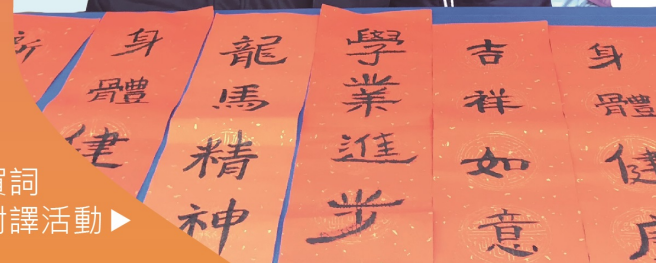 新
身體健
龍馬精神
學業進步
吉祥如意
身體健康
詞
譯活動▶